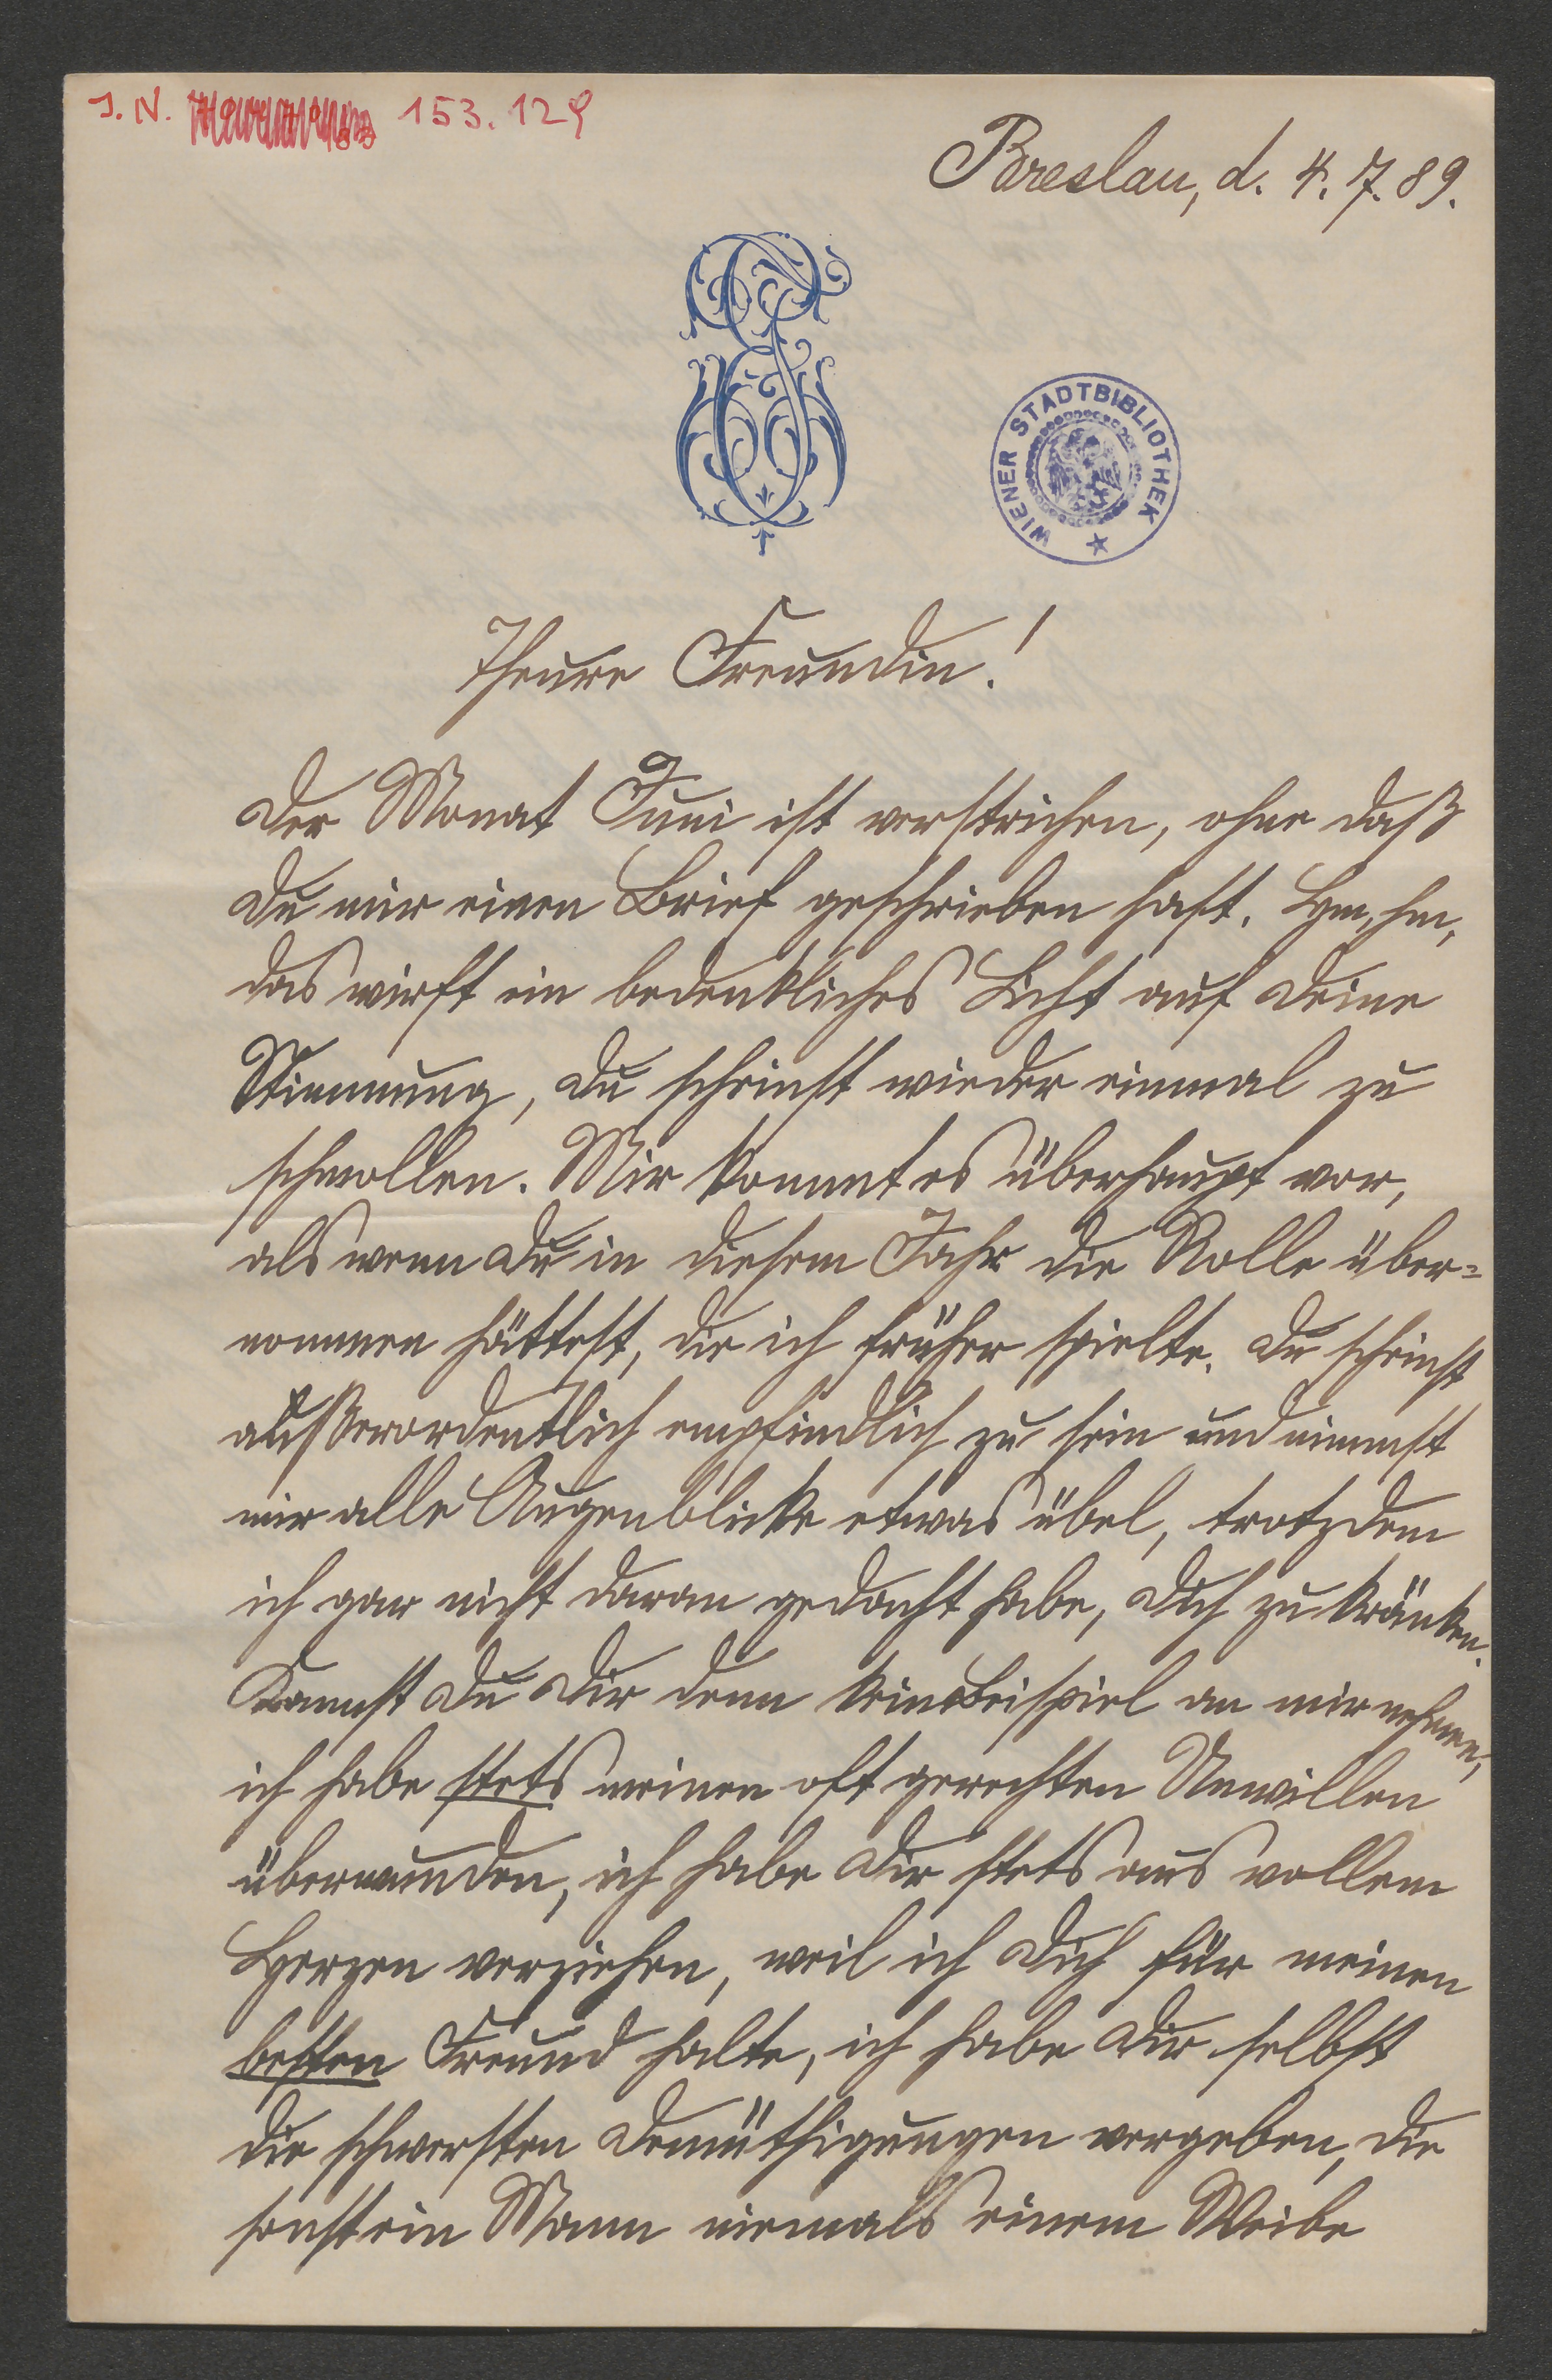 J. N. 153.129
Breslau, d. 4. 7. 89.
WIENER STADTBIBLIOTHEK
Theure Freundin!
Der Monat Juni ist verstrichen, ohne daß
Du mir einen Brief geschrieben hast. Hm, hm,
das wirft ein bedenkliches Licht auf Deine
Stimmung, Du scheinst wieder einmal zu
schmollen. Mir kommt es überhaupt vor,
als wenn Du in diesem Jahr die Rolle über=
nommen hättest, die ich früher spielte. Du scheinst
außerordentlich empfindlich zu sein und nimmst
mir alle Augenblicke etwas übel, trotzdem
ich gar nicht daran gedacht habe, Dich zu kränken.
Kannst Du Dir denn kein Beispiel an mir nehmen,
ich habe stets meinen oft gerechten Unwillen
überwunden, ich habe Dir stets aus vollem
Herzen verziehen, weil ich Dich für meinen
besten Freund halte, ich habe Dir selbst
die schwersten Demüthigungen vergeben, die
sonst ein Mann niemals einem Weibe